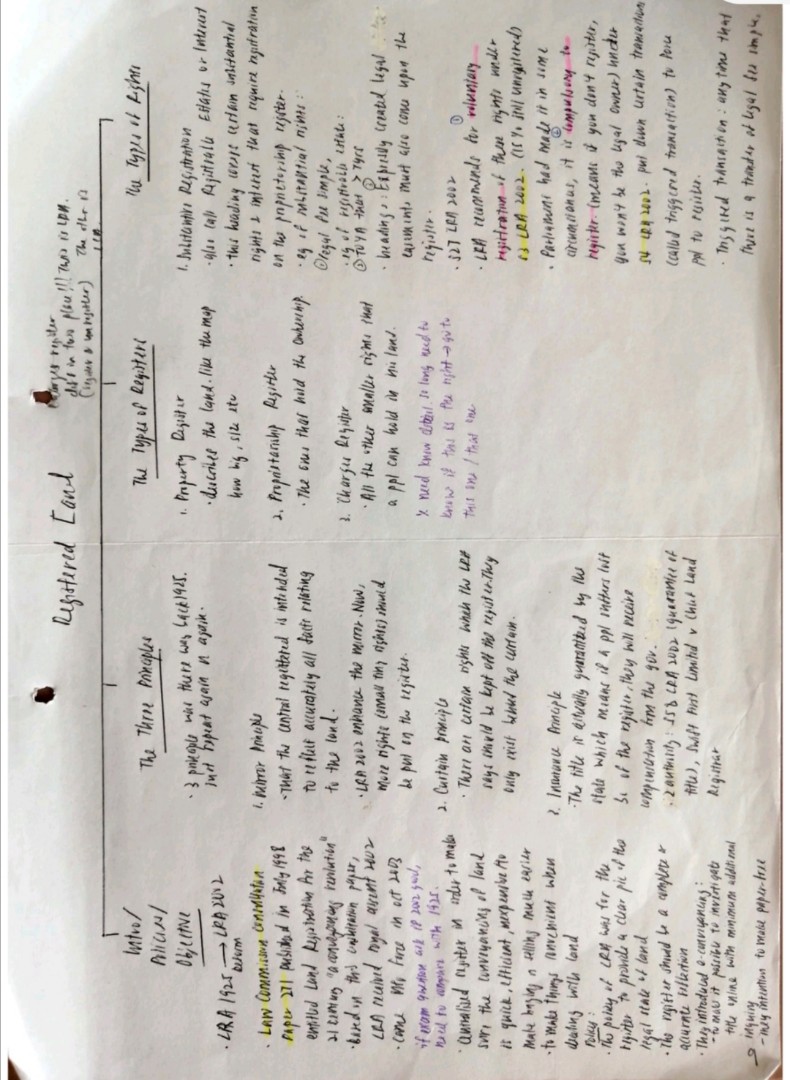 Registered Land
Charges register
did in two place!!! This is LRA.
(register & unregister) The other is
LCA
Intro/
Policies/
Objective
· LRA 1925 → LRA 2002
reform
· Law Commission Consultation
Paper 271 published in July 1998
entitled Land Registration for the
21 century "a conveyancing revolution"
· based in this consultation paper,
LRA received royal assent 2002
· come into force in oct 2003
if exam question ask if 2002 good,
need to compare with 1925.
· Centralised register in order to make
sure the conveyancing of land
is quick, efficient, inexpensive to
make buying n selling much easier
· to make things convenient when
dealing with land
Policy:
· The policy of LRA was for the
register to provide a clear pic of the
legal state of land
· The register should be a complete &
accurate reflection
· They introduced e-conveyancing:
- to make it possible to investigate
title online with minimum additional
inquiry
- they intention to make paper-free
The Three Principles
· 3 principle was there was back 1925.
just repeat again n again.
1. Mirror Principle
· That the central registered is intended
to reflect accurately all facts relating
to the land.
· LRA 2002 enhance the mirror. Now,
more rights (small tiny rights) should
be put on the register.
2. Curtain Principle
· There are certain rights which the LRA
says should be kept off the register. They
only exist behind the curtain.
3. Insurance Principle
· The title is actually guaranteed by the
state which means if a ppl suffers lost
bc of the register, they will receive
compensation from the gov.
· 2 authority: S58 LRA 2002 (guarantee of
title), Swift First Limited v Chief Land
Registrar
The Types of Registers
1. Property Register
· describes the land. like the map
how big, size etc
2. Proprietorship Register
· The ones that hold the ownership
3. Charges Register
· All the other smaller rights that
a ppl can hold in the land.
x need know detail. so long need to
know if this is the right → go to
this one / that one
The Types of Rights
1. Substantive Registration
· also call Registrable Estates or Interest
· this heading covers certain substantial
rights & interest that require registration
on the proprietorship register.
· eg of substantial rights:
① legal fee simple,
· eg of registrable estate:
② TOYA that > 7yrs
③
· heading: Expressly created legal
easements must also come upon the
register.
· S27 LRA 2002
①
· LRA recommends for voluntary
registration of these rights under
S3 LRA 2002. (15% still unregistered)
· Parliament had made it in some
②
circumstances, it is compulsory to
register (means if you don't register,
you won't be the legal owner) under
S4 LRA 2002. put down certain transaction
(called triggered transaction) to force
ppl to register.
· Triggered transaction: any time that
there is a transfer of legal fee simple.